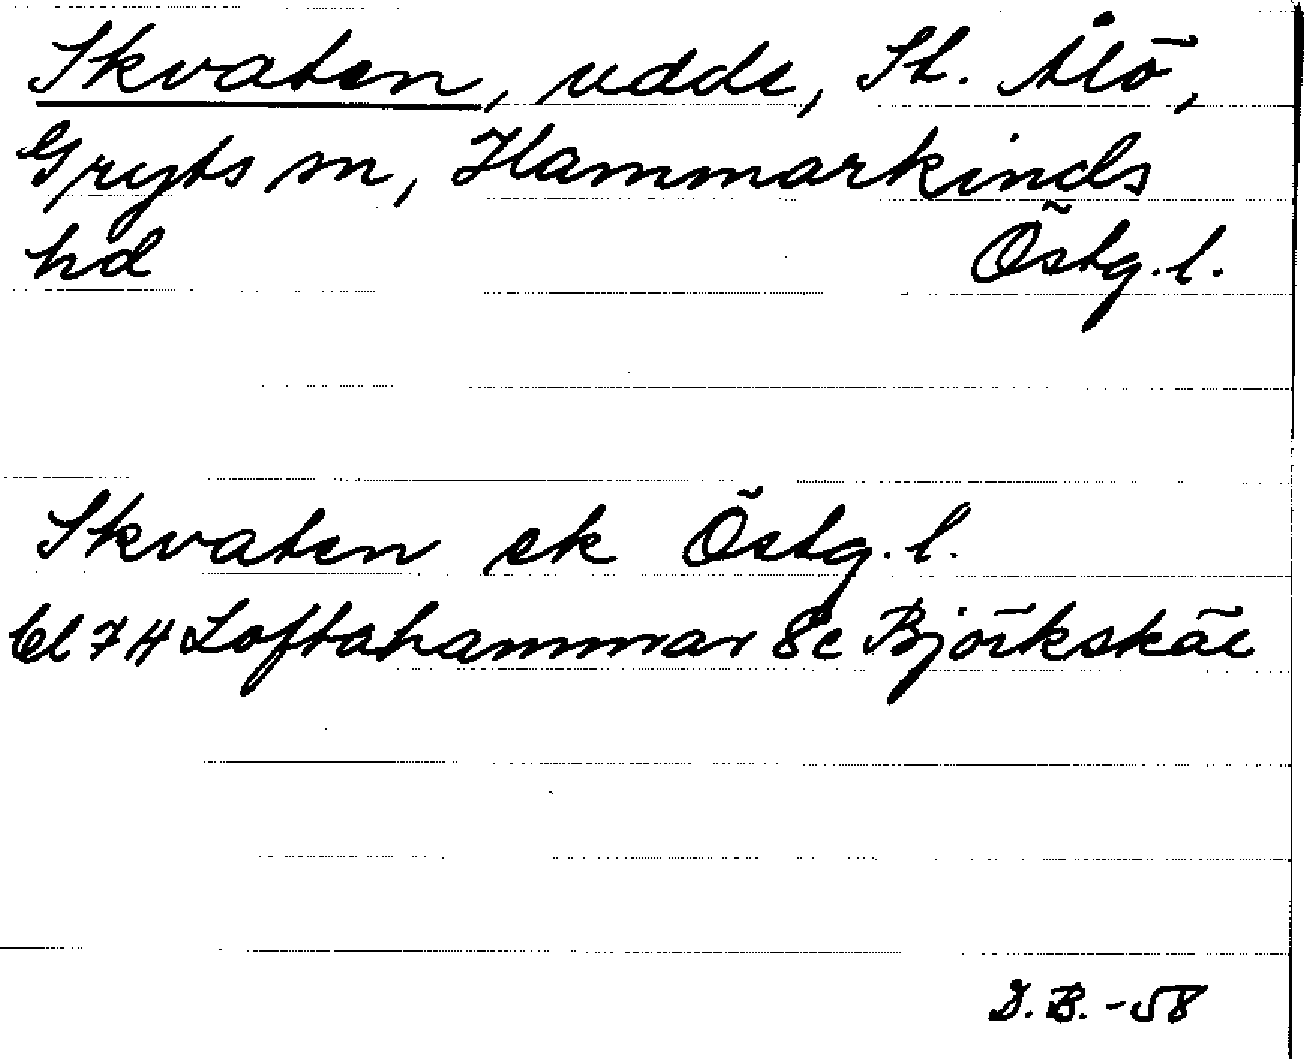 Skvaten, udde, St. Ålö,
Gryts sn, Hammarkinds
hd Östg.l.
Skvaten ek Östg.l.
bl 7H Loftahammar 8e Björkskär
D.B. -58